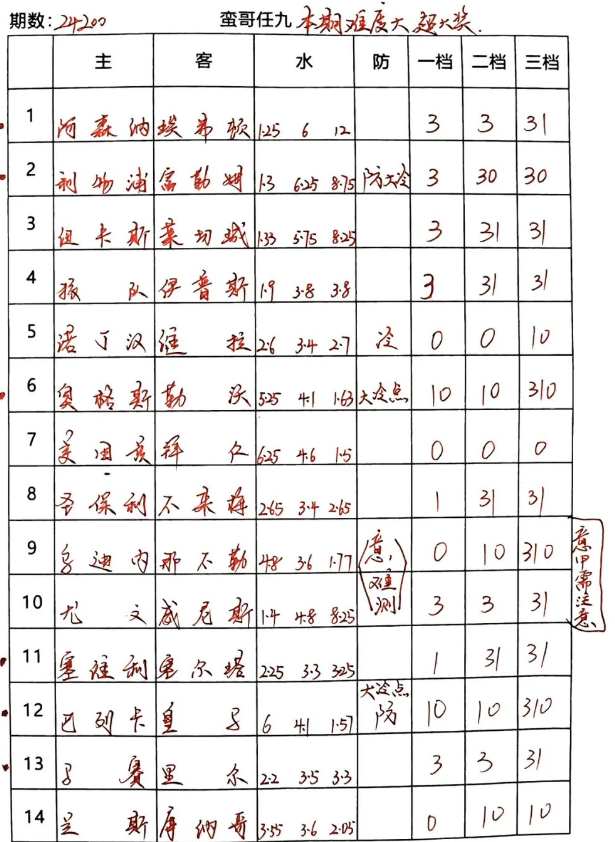 期数:24200 蛮哥任九 本期难度大 超大奖.
主 客 水 防 一档 二档 三档
1 阿森纳 埃弗顿 1.25 6 12 3 3 31
2 利物浦 富勒姆 1.3 6.25 8.75 防大冷 3 30 30
3 纽卡斯 莱切城 1.33 5.75 8.25 3 31 31
4 狼队 伊普斯 1.9 3.8 3.8 3 31 31
5 诺丁汉 维拉 2.6 3.4 2.7 冷 0 0 10
6 奥格斯 勒沃 5.25 4.1 1.63 大冷点 10 10 310
7 美因茨 拜仁 6.25 4.6 1.5 0 0 0
8 圣保利 不来梅 2.65 3.4 2.65 1 31 31
9 乌迪内 那不勒 4.8 3.6 1.77 意, 0 10 310
难测
意甲需注意
10 尤文 威尼斯 1.4 4.8 8.25 3 3 31
11 塞维利 塞尔塔 2.25 3.3 3.25 1 31 31
12 巴列卡 皇马 6 4.1 1.57 大冷点 防 10 10 310
13 马赛 里尔 2.2 3.5 3.3 3 3 31
14 兰斯 摩纳哥 3.55 3.6 2.05 0 10 10